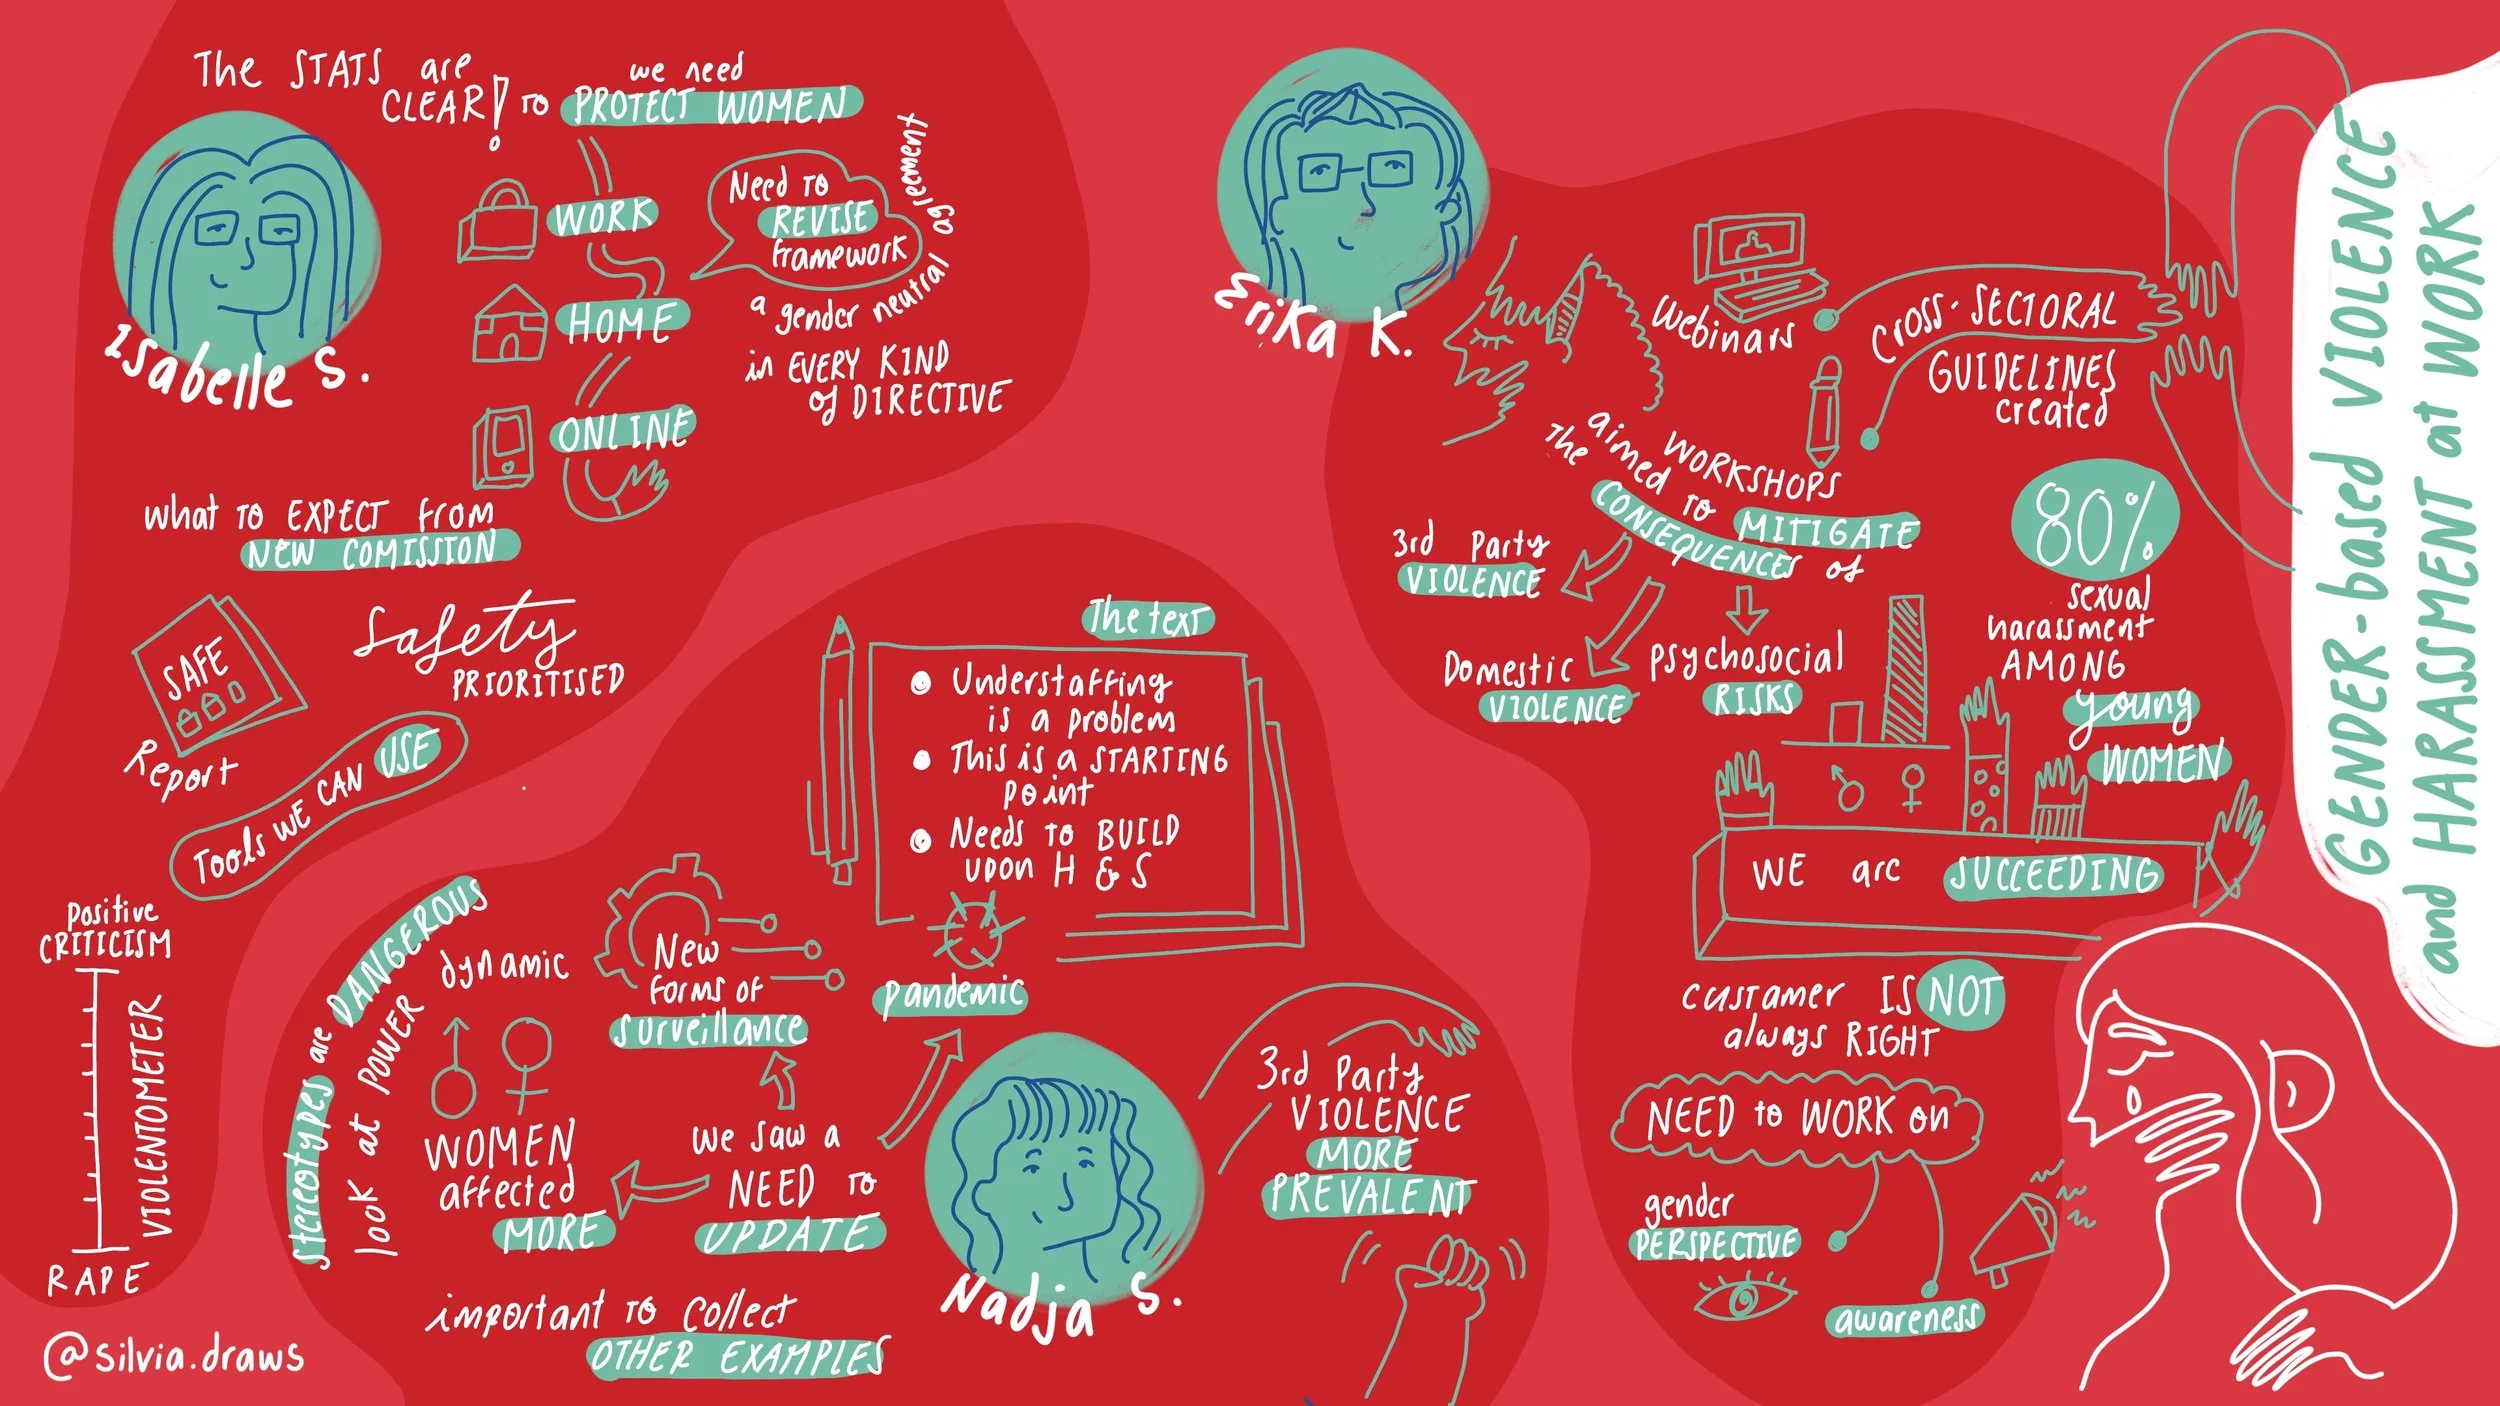 The STATS are
CLEAR!
we need
to PROTECT WOMEN
WORK
HOME
ONLINE
Need to
REVISE
framework
a gender neutral agreement
in EVERY KIND
of DIRECTIVE
Isabelle S.
what to EXPECT from
NEW COMISSION
Safety
PRIORITISED
SAFE
Report
Tools we CAN USE
positive
CRITICISM
VIOLENTOMETER
RAPE
@silvia.draws
stereotypes are DANGEROUS
look at POWER dynamic
WOMEN
affected
MORE
New
forms of
surveillance
we saw a
NEED to
UPDATE
important to collect
OTHER EXAMPLES
pandemic
The text
Understaffing
is a problem
This is a STARTING
point
Needs to BUILD
upon H & S
Nadja S.
3rd Party
VIOLENCE
MORE
PREVALENT
Erika K.
Webinars
Cross-SECTORAL
GUIDELINES
created
WORKSHOPS
aimed to MITIGATE
the CONSEQUENCES of
3rd Party
VIOLENCE
Domestic
VIOLENCE
psychosocial
RISKS
80%
sexual
harassment
AMONG
young
WOMEN
WE are SUCCEEDING
customer IS NOT
always RIGHT
NEED to WORK on
gender
PERSPECTIVE
awareness
GENDER-based VIOLENCE
and HARASSMENT at WORK